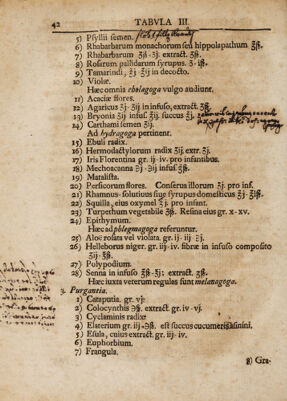 42 TABVLA III.
5) Psyllii semen.
6) Rhabarbarum monachorum seu hippolapathum ʒß.
7) Rhabarbarum ʒß-ʒj. extract. ℈ß.
8) Rosarum pallidarum syrupus. ℥-iß.
9) Tamarindi, ℥j-℥ij in decocto.
10) Violæ.
Hæc omnia cholagoga vulgo audiunt.
11) Acaciæ flores.
12) Agaricus ʒj-ʒij in infuso, extract. ℈ß.
13) Bryonia ʒij infus. ℥ij. succus ℥j.
14) Carthami semen ℥j.
Ad hydragoga pertinent.
15) Ebuli radix.
16) Hermodactylorum radix ʒij. extr. ʒj.
17) Iris Florentina gr. ij-iv. pro infantibus.
18) Mechoacanna ℈j-℈ij infus. ℥ß.
19) Matalista.
20) Persicorum flores. Conserva illorum ℥j. pro inf.
21) Rhamnus solutivus sive syrupus domesticus ℥j. pro inf.
22) Squilla, ejus oxymel ℥j. pro infant.
23) Turpethum vegetabile ℥ß. Resina ejus gr. x-xv.
24) Epithymum.
Hæc ad phlegmagoga referuntur.
25) Aloë rosata vel violata. gr. ij-iij-℈j.
26) Helleborus niger. gr. iij-iv. fibræ in infuso composito ʒij-℥ß.
27) Polypodium.
28) Senna in infuso ℥ß-℥j. extract. ℈ß.
Hæc juxta veterum regulas sunt melanagoga.
3. Purgantia.
1) Cataputia. gr. vj.
2) Colocynthis ℈ß. extract. gr. iv-vj.
3) Cyclaminis radix.
4) Elaterium gr. iij-℈ß. est succus cucumeris asinini.
5) Esula, cujus extract. gr. iij-iv.
6) Euphorbium.
7) Frangula.
8) Gra-